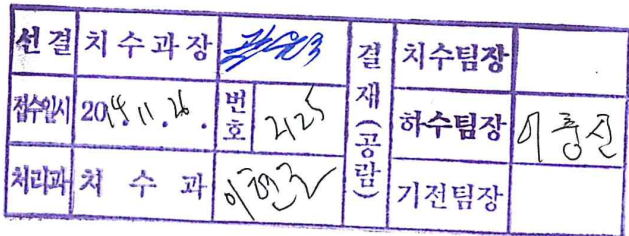 선결 치수과장 결재(공람) 치수팀장
접수일시 2014.11.26. 번호 2125 하수팀장
처리과 치수과 기전팀장